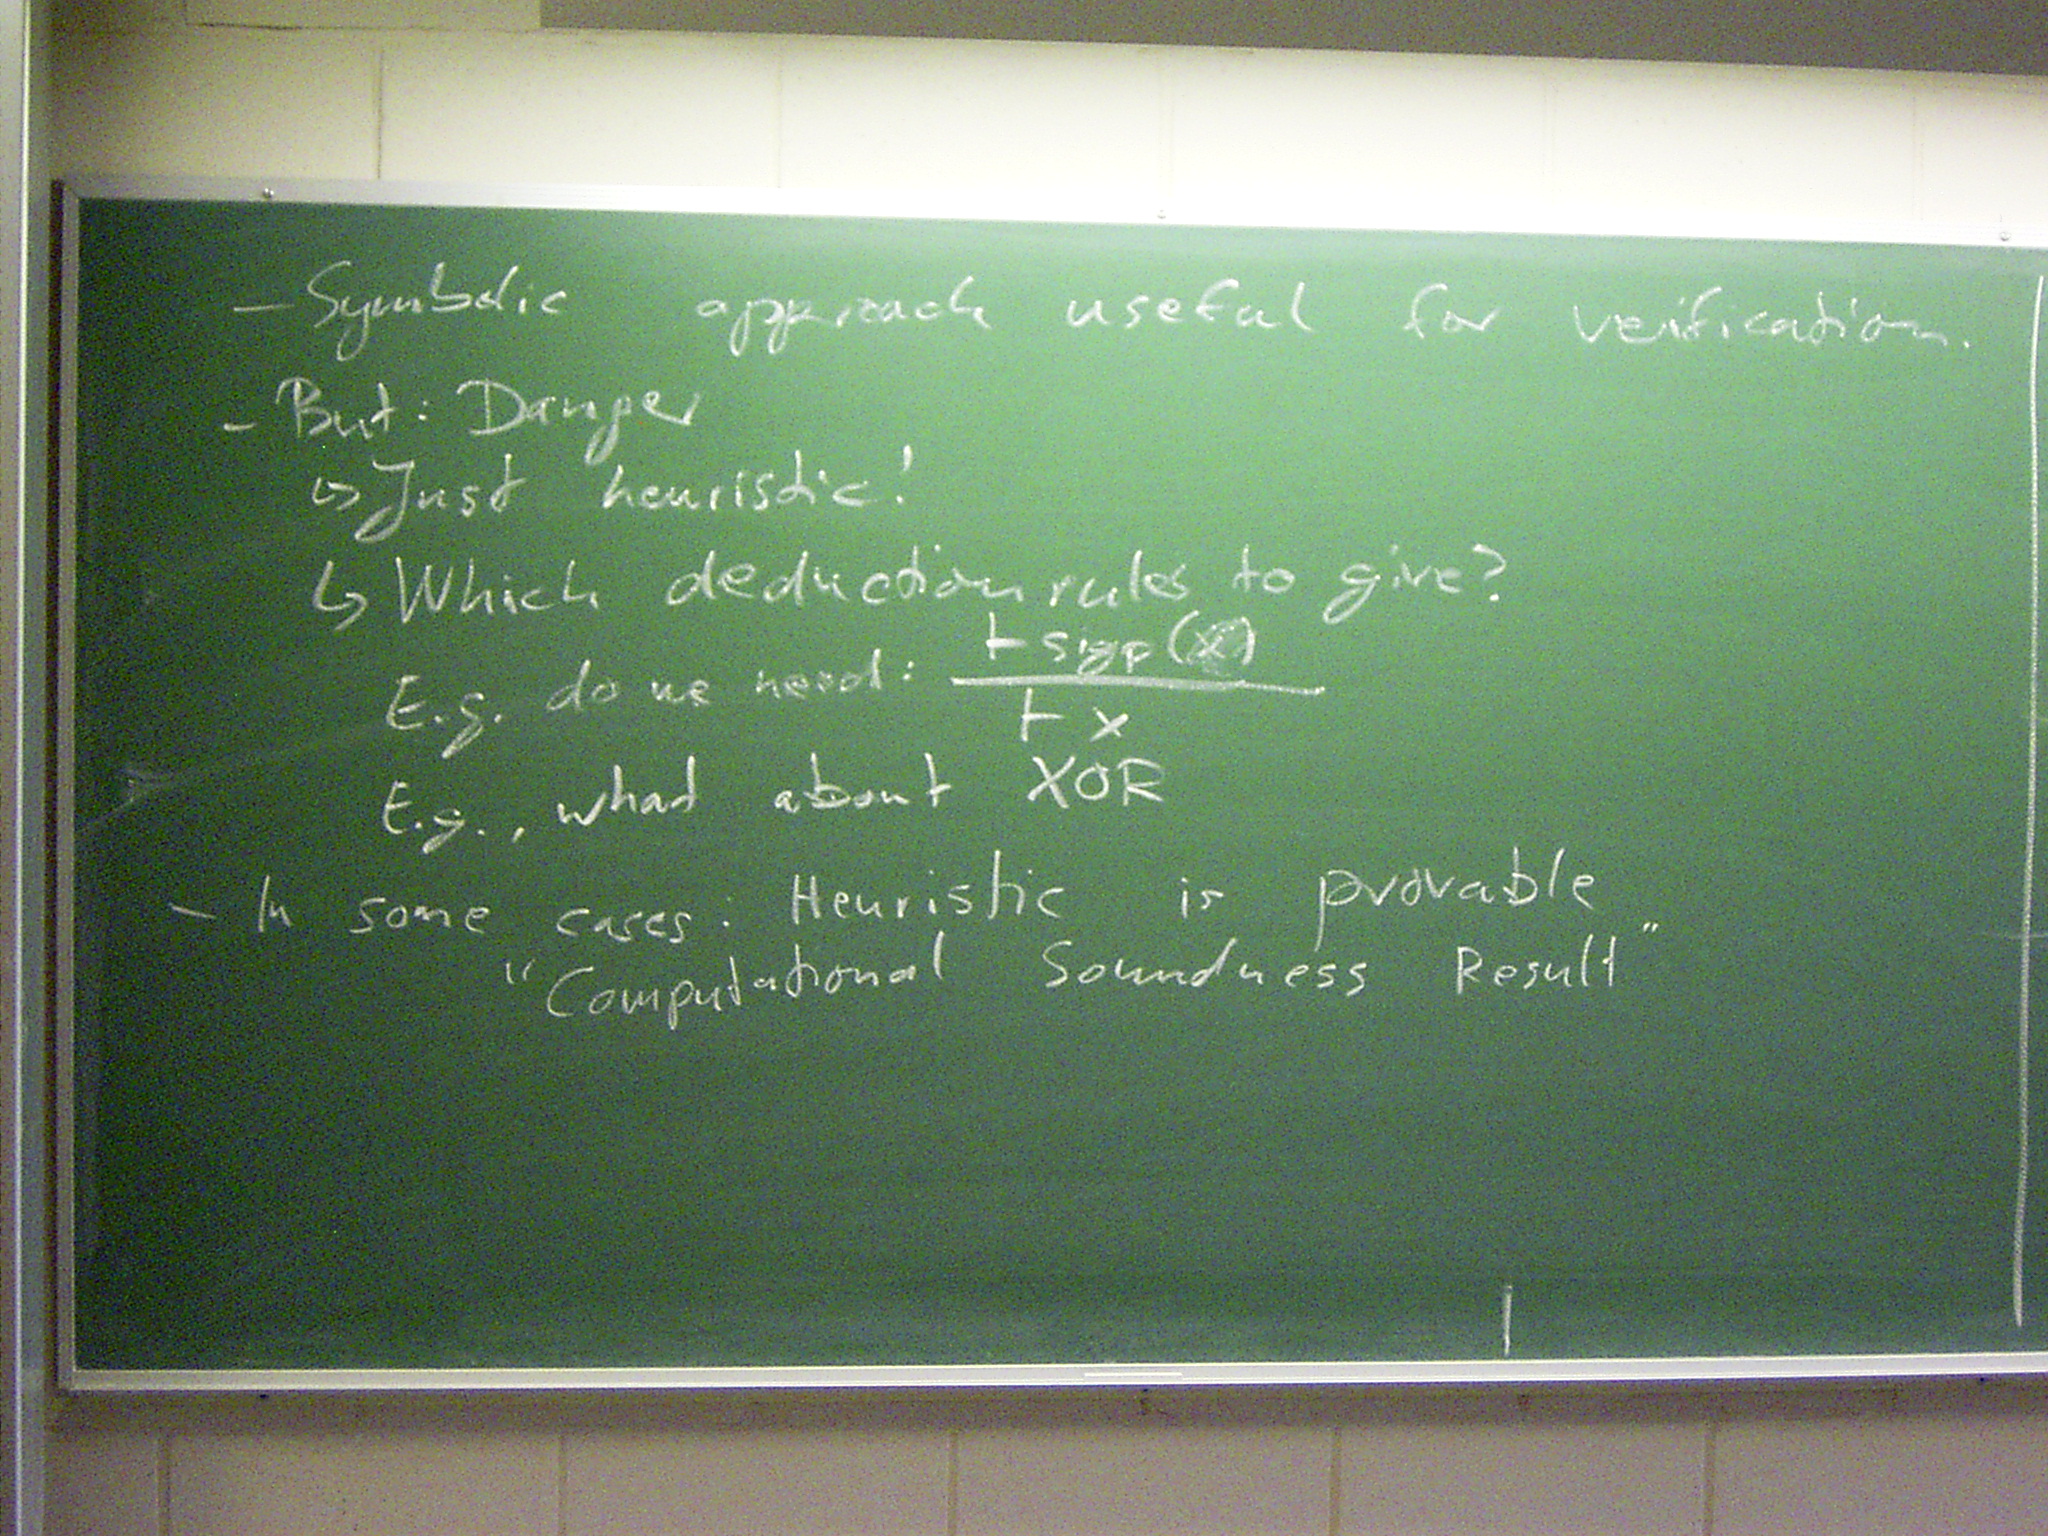 - Symbolic approach useful for verification.
- But: Danger
↳ Just heuristic!
↳ Which deduction rules to give?
⊢ sigp(x)
E.g. do we need:
⊢ x
E.g., what about XOR
- In some cases: Heuristic is provable
"Computational Soundness Result"